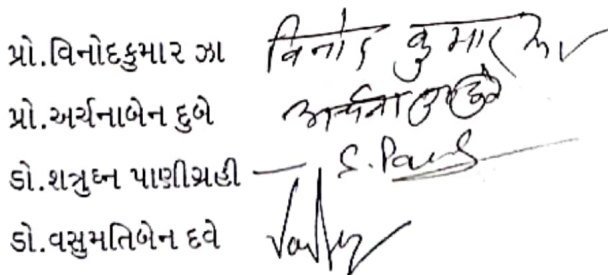 પ્રો.વિનોદકુમાર ઝા विनोद कुमार झा
પ્રો.અર્ચનાબેન દુબે अर्चना दुबे
ડો.શત્રુઘ્ન પાણીગ્રહી — S. Pa
ડો.વસુમતિબેન દવે